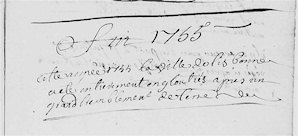 fin 1765
cette annee 1755 la ville de lisbonne
a ete entierement engloutis apres un
grand tremblement de terre